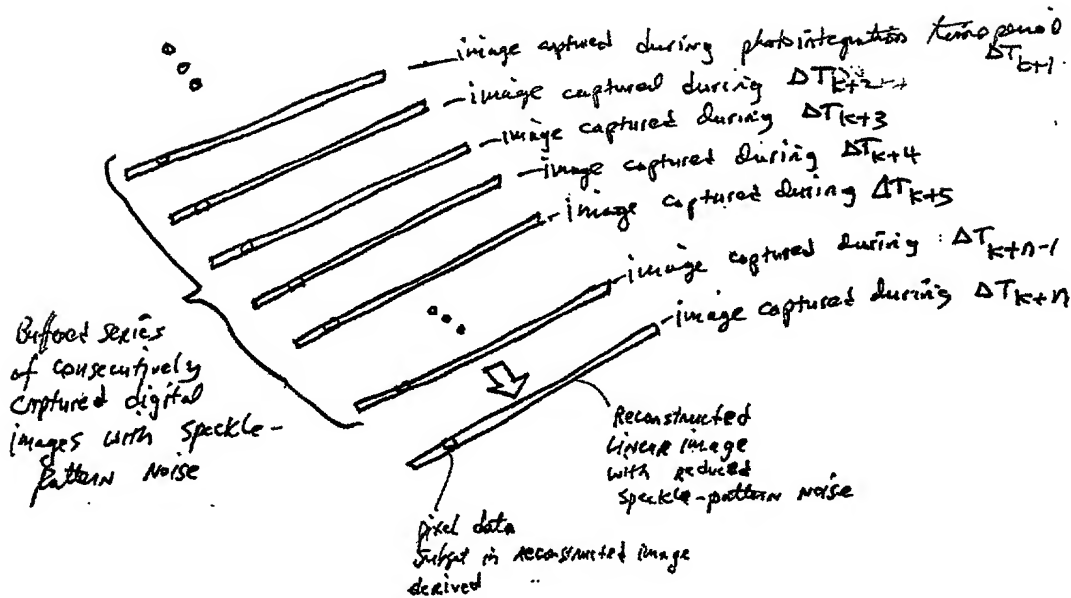 image captured during photointegration time period
ΔTk+1
image captured during ΔTk+2
image captured during ΔTk+3
image captured during ΔTk+4
image captured during ΔTk+5
image captured during ΔTk+n-1
image captured during ΔTk+n
Buffered series
of consecutively
captured digital
images with speckle-
pattern noise
Reconstructed
Linear image
with reduced
speckle-pattern noise
pixel data
subset in reconstructed image
derived